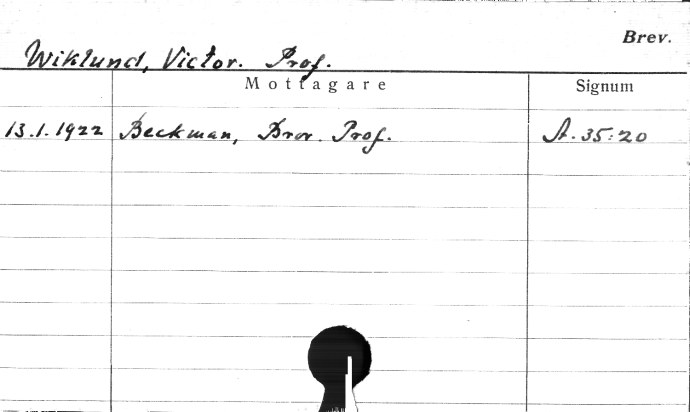 Brev.
Wiklund, Victor. Prof.
Mottagare Signum
13.1.1922 Beckman, Bror. Prof. A. 35:20